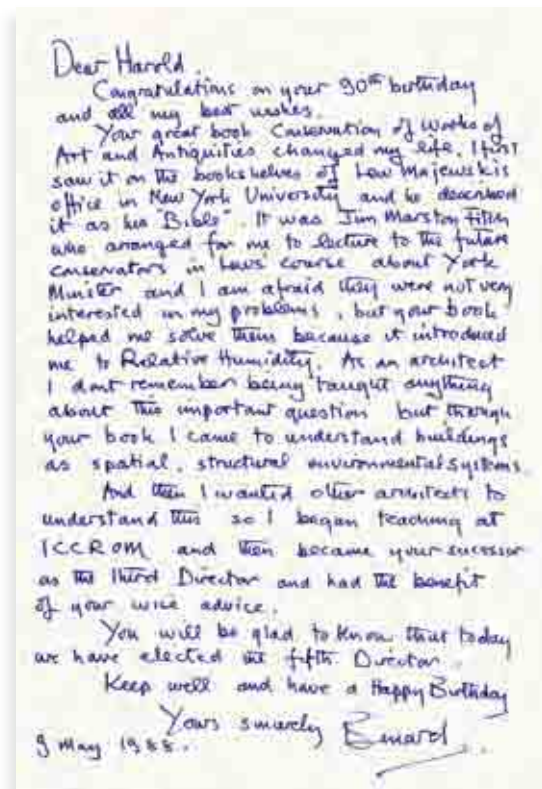 Dear Harold
Congratulations on your 90th birthday
and all my best wishes.
Your great book Conservation of Works of
Art and Antiquities changed my life. I first
saw it on the bookshelves of Lew Majewskis
office in New York University and he described
it as his "Bible". It was Jim Marston Fitch
who arranged for me to lecture to the future
conservators in Lews' course about York
Minster and I am afraid they were not very
interested in my problems, but your book
helped me solve them because it introduced
me to Relative Humidity. As an architect
I dont remember being taught anything
about this important question but through
your book I came to understand buildings
as spatial, structural environmental systems.
And then I wanted other architects to
understand this so I began teaching at
ICCROM and then became your sucessor
as the third Director and had the benefit
of your wise advice.
You will be glad to know that today
we have elected the fifth Director.
Keep well and have a Happy Birthday
Yours sincerely
9 May 1988.